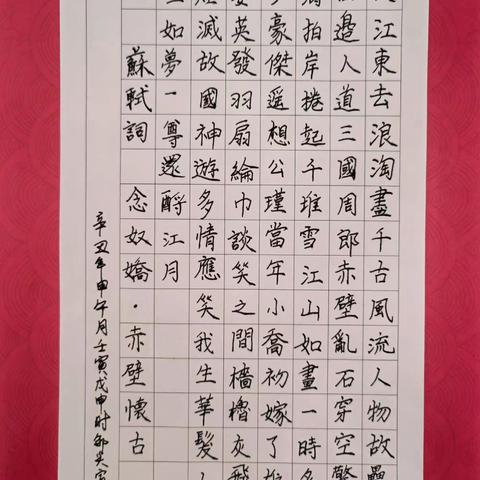 江東去浪淘盡千古風流人物故壘
邊人道三國周郎赤壁亂石穿空驚
拍岸捲起千堆雪江山如畫一時多
豪傑遥想公瑾當年小喬初嫁了
英發羽扇綸巾談笑之間檣櫓灰飛
滅故國神遊多情應笑我生華髮
如夢一尊還酹江月
蘇軾詞 念奴嬌·赤壁懷古
辛丑年甲午月壬寅戊申时